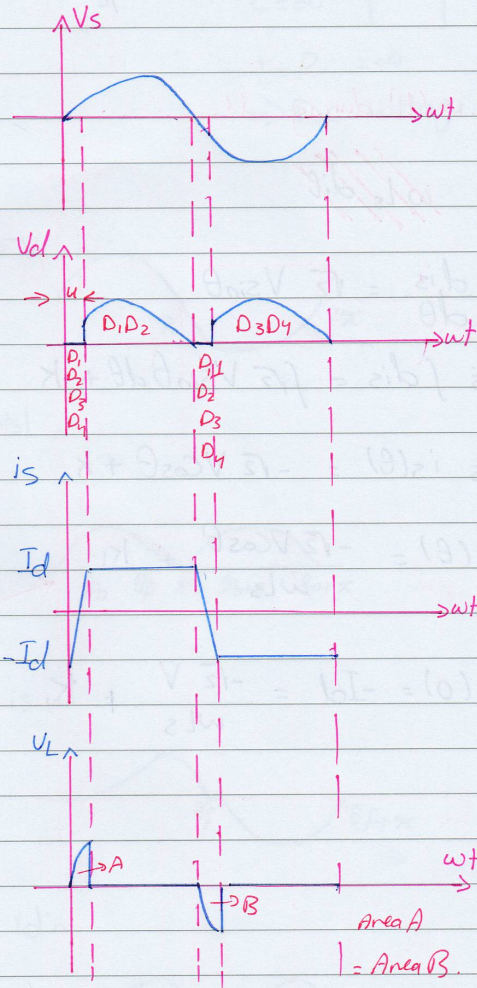 Vs
ωt
Vd
u
D1D2
D3D4
ωt
D1
D2
D3
D4
D1
D2
D3
D4
is
Id
ωt
-Id
VL
A
ωt
B
Area A
= Area B.